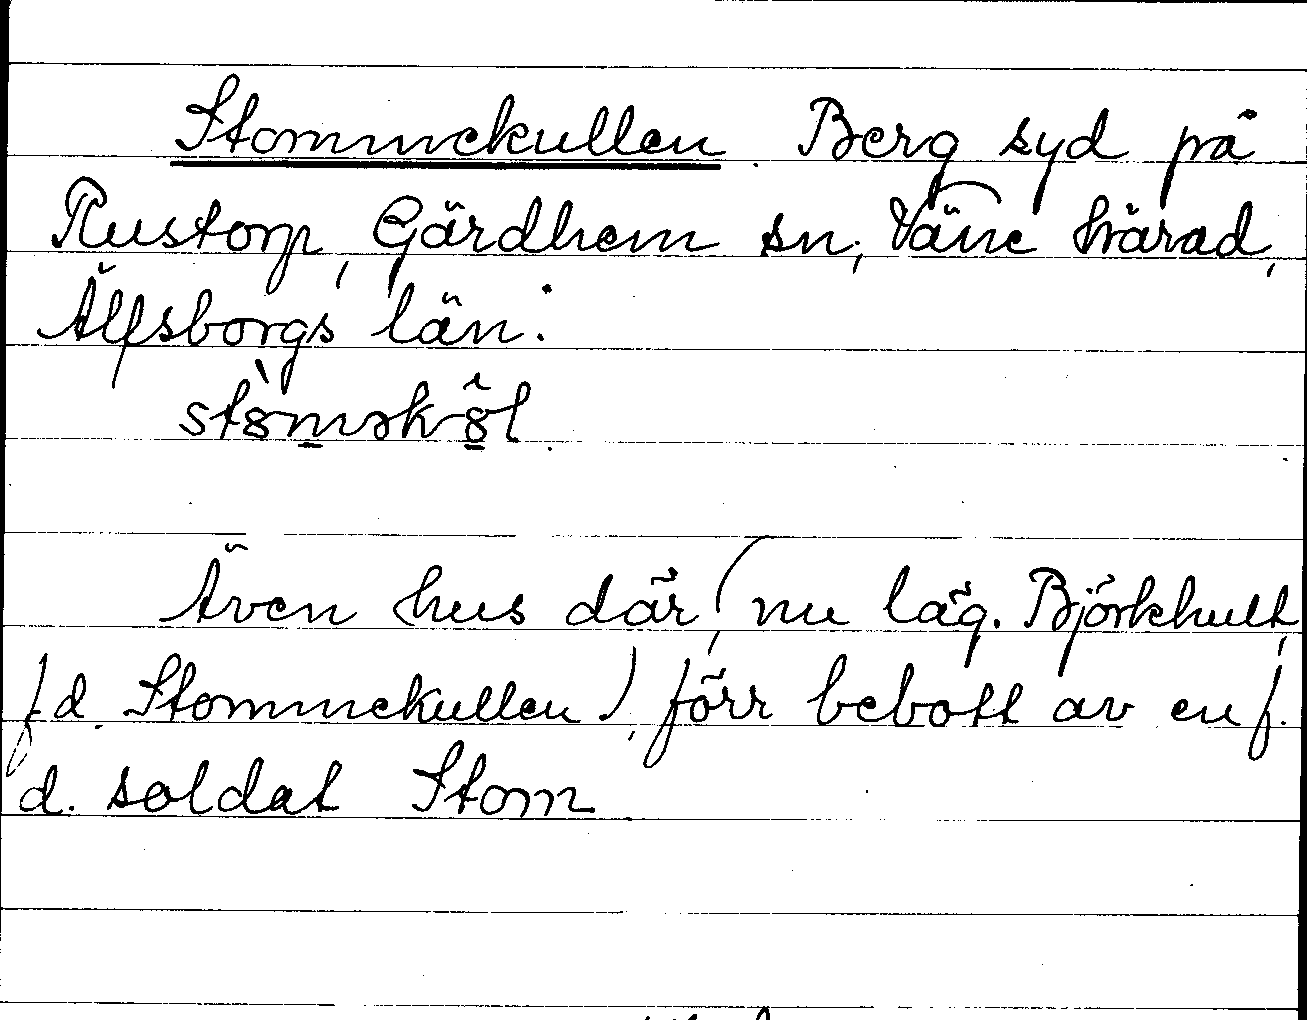 Stommekullen. Berg syd på
Rustorp, Gärdhem sn, Väne härad,
Älfsborgs län.
Även hus där, (nu läg. Björkhult,
f.d. Stommekullen), förr bebott av en f.
d. soldat Stom